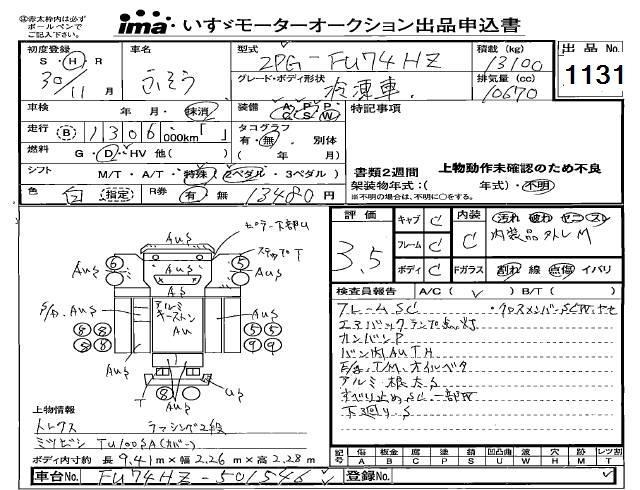 ※赤太枠内は必ずボールペンでご記入下さい。
ima いすゞモーターオークション出品申込書
初度登録 車名 型式 積載(kg) 出品No.
S・H・R 30/11月 ふそう 2PG-FU74HZ 13100 1131
グレード・ボディ形状 冷凍車 排気量(cc) 10670
車検 年・月・抹消 装備 A/C P/S P/W 特記事項
走行 B 1306,000km「 」 タコグラフ 有・無・別体
燃料 G・D・HV 他( ) ( 年 月)
シフト M/T・A/T・特殊(2ペダル・3ペダル)
書類2週間 上物動作未確認のため不良
架装物年式:( 年式)・不明
※不明の場合は、不明に○をする。
色 白(指定) R券 有・無 13480円
評価 3.5 キャブ C 内装 C 汚れ 破れ ヤニコスレ
内装品外レM
フレーム C
ボディ C Fガラス 割れ 線 点傷 イバリ
検査員報告 A/C( ✓ )B/T( )
フレームSC ・クロスメンバーSCW、サセ
エアバックランプ点灯
カンバンP
バン内AUTH
E/g、T/M、オイルベタ
アルミ根太S
すべり止めSC一部W
下廻り、S
ピラー下部U
AUS
ステップT
⑥ AUS ⑤
AUS AUS AUS
AS
S/D、AUS アルミキーストン AUS
AU
⑧⑧ ⑤⑤
⑧⑧ ⑨⑨
AUS AUS
T US
⑧
AUS
上物情報
トレクス ラッシング2段
ミツビシ TU100SA(カバー)
ボディ内寸約 長9.41m×幅2.26m×高2.28m
記号 傷 A 板金 B 腐 C 塗 P 錆 S 凹凸曲 U 波 W 穴 H 跡 M レツ割 T
車台No. FU74HZ-501546 登録No.